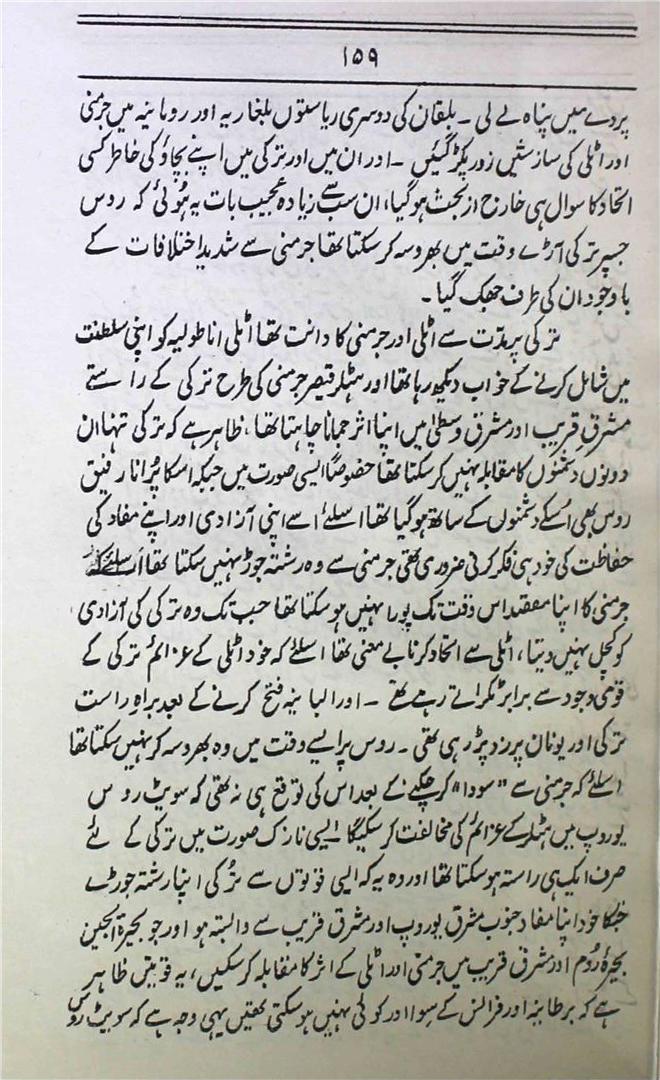 ۱۵۹
پردے میں پناہ لے لی ۔ بلقان کی دوسری ریاستوں بلغاریہ اور رومانیہ میں جرمنی
اور اٹلی کی سازشیں زور پکڑ گئیں ۔ اور ان میں اور ترکی میں اپنے بچاؤ کی خاطر کسی
اتحاد کا سوال ہی خارج از بحث ہو گیا، ان سب سے زیادہ عجیب بات یہ ہوئی کہ روس
جسپر ترکی آڑے وقت میں بھروسہ کر سکتا تھا جرمنی سے شدید اختلافات کے
باوجود ان کی طرف جھک گیا ۔
ترکی پر مدّت سے اٹلی اور جرمنی کا دانت تھا اٹلی اناطولیہ کو اپنی سلطنت
میں شامل کرنے کے خواب دیکھ رہا تھا اور ہٹلر قیصر جرمنی کی طرح ترکی کے راستے
مشرقِ قریب اور مشرق وسطیٰ میں اپنا اثر جمانا چاہتا تھا، ظاہر ہے کہ ترکی تنہا ان
دونوں دشمنوں کا مقابلہ نہیں کر سکتا تھا خصوصاً ایسی صورت میں جبکہ اسکا پُرانا رفیق
روس بھی اُسکے دشمنوں کے ساتھ ہو گیا تھا اسلئے اسے اپنی آزادی اور اپنے مفاد کی
حفاظت کی خود ہی فکر کرنی ضروری تھی جرمنی سے وہ رشتہ جوڑ نہیں سکتا تھا اسلئے کہ
جرمنی کا اپنا مقصد اس وقت تک پورا نہیں ہو سکتا تھا جب تک وہ ترکی کی آزادی
کو کچل نہیں دیتا، اٹلی سے اتحاد کرنا بے معنی تھا اسلئے کہ خود اٹلی کے عزائم ترکی کے
قومی وجود سے برابر ٹکراتے رہے تھے ۔ اور البانیہ فتح کرنے کے بعد براہِ راست
ترکی اور یونان پر زد پڑ رہی تھی ۔ روس پر ایسے وقت میں وہ بھروسہ کر نہیں سکتا تھا
اسلئے کہ جرمنی سے "سودا" کر چکنے کے بعد اس کی توقع ہی نہ تھی کہ سویٹ روس
یوروپ میں ہٹلر کے عزائم کی مخالفت کر سکیگا ایسی نازک صورت میں ترکی کے لئے
صرف ایک ہی راستہ ہو سکتا تھا اور وہ یہ کہ ایسی قوتوں سے ترکی اپنا رشتہ جوڑے
جنکا خود اپنا مفاد جنوب مشرق یوروپ اور مشرق قریب سے وابستہ ہو اور جو بحیرۂ ایجین
بحیرۂ رُوم اور مشرق قریب میں جرمنی اور اٹلی کے اثر کا مقابلہ کر سکیں، یہ قوتیں ظاہر
ہے کہ برطانیہ اور فرانس کے سوا اور کوئی نہیں ہو سکتی تھیں یہی وجہ ہے کہ سویٹ روس